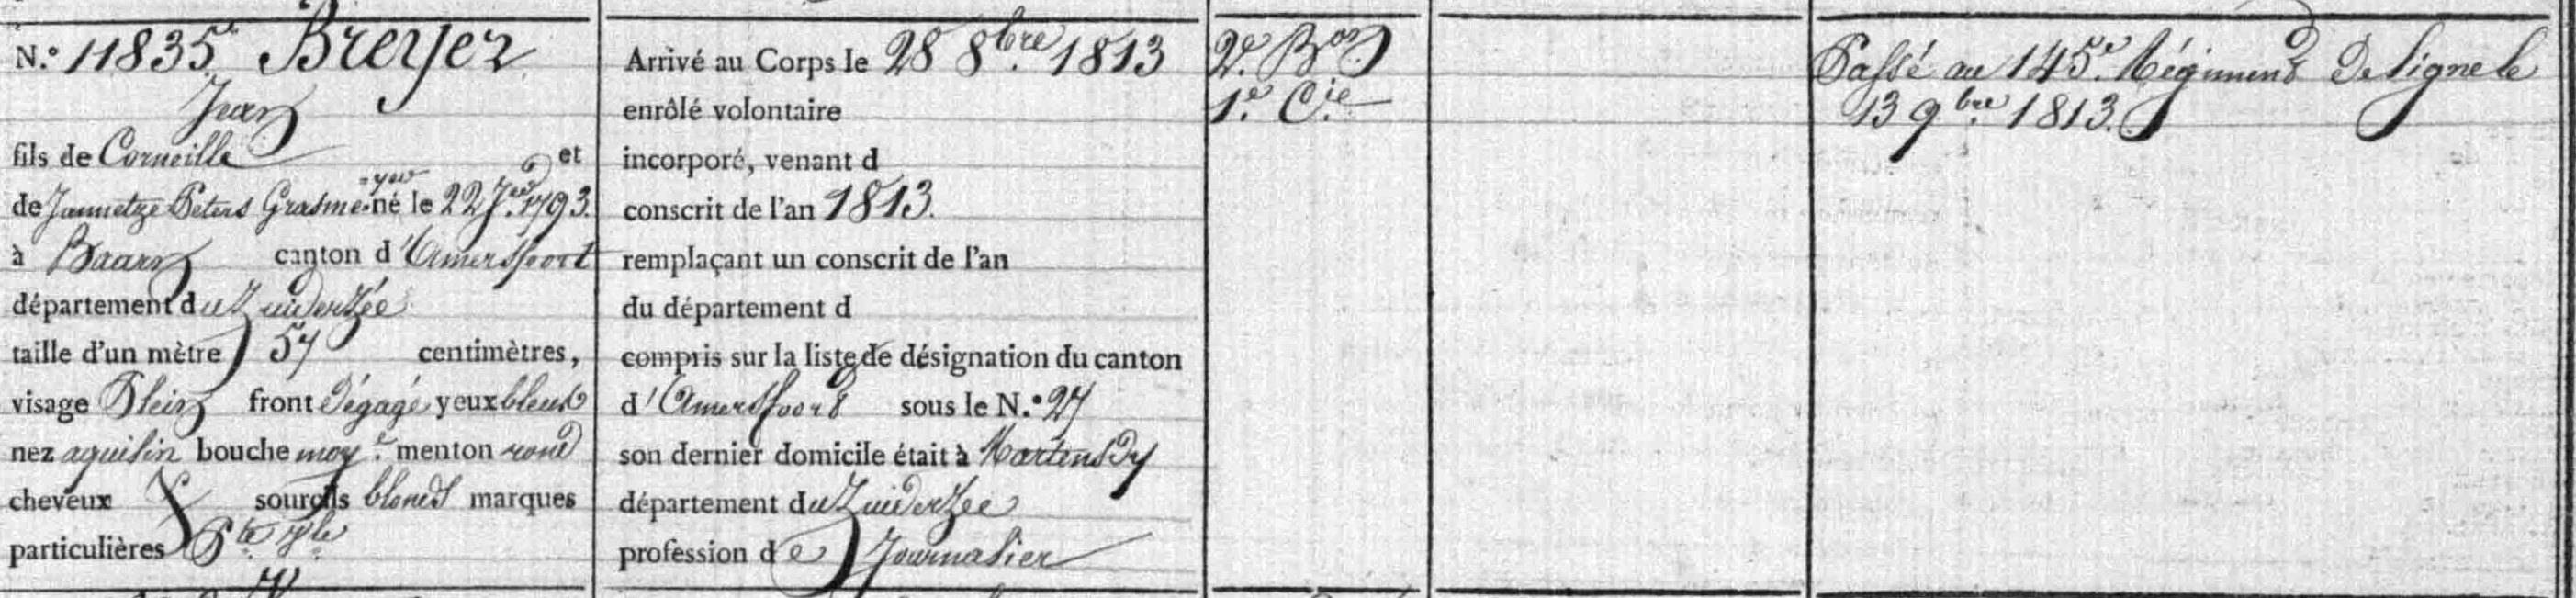 N.° 11835. Breyer
Jean
fils de Corneille et
de Jannetze Peters Grasme=yer né le 22 J.er 1793.
à Baarn canton d'Amersfoort
département du Zuiderzée
taille d'un mètre 57 centimètres,
visage Plein front dégagé yeux bleus
nez aquilin bouche moy.e menton rond
cheveux & sourcils blonds marques
particulières P.te v.le
Arrivé au Corps le 28 8.bre 1813
enrôlé volontaire
incorporé, venant d
conscrit de l'an 1813.
remplaçant un conscrit de l'an
du département d
compris sur la liste de désignation du canton
d'Amersfoord sous le N.° 27
son dernier domicile était à Martensdy
département du Zuiderzee
profession de Journalier
2.e B.on
1.e C.ie
Passé au 145.e Régiment de ligne le
13 9.bre 1813.